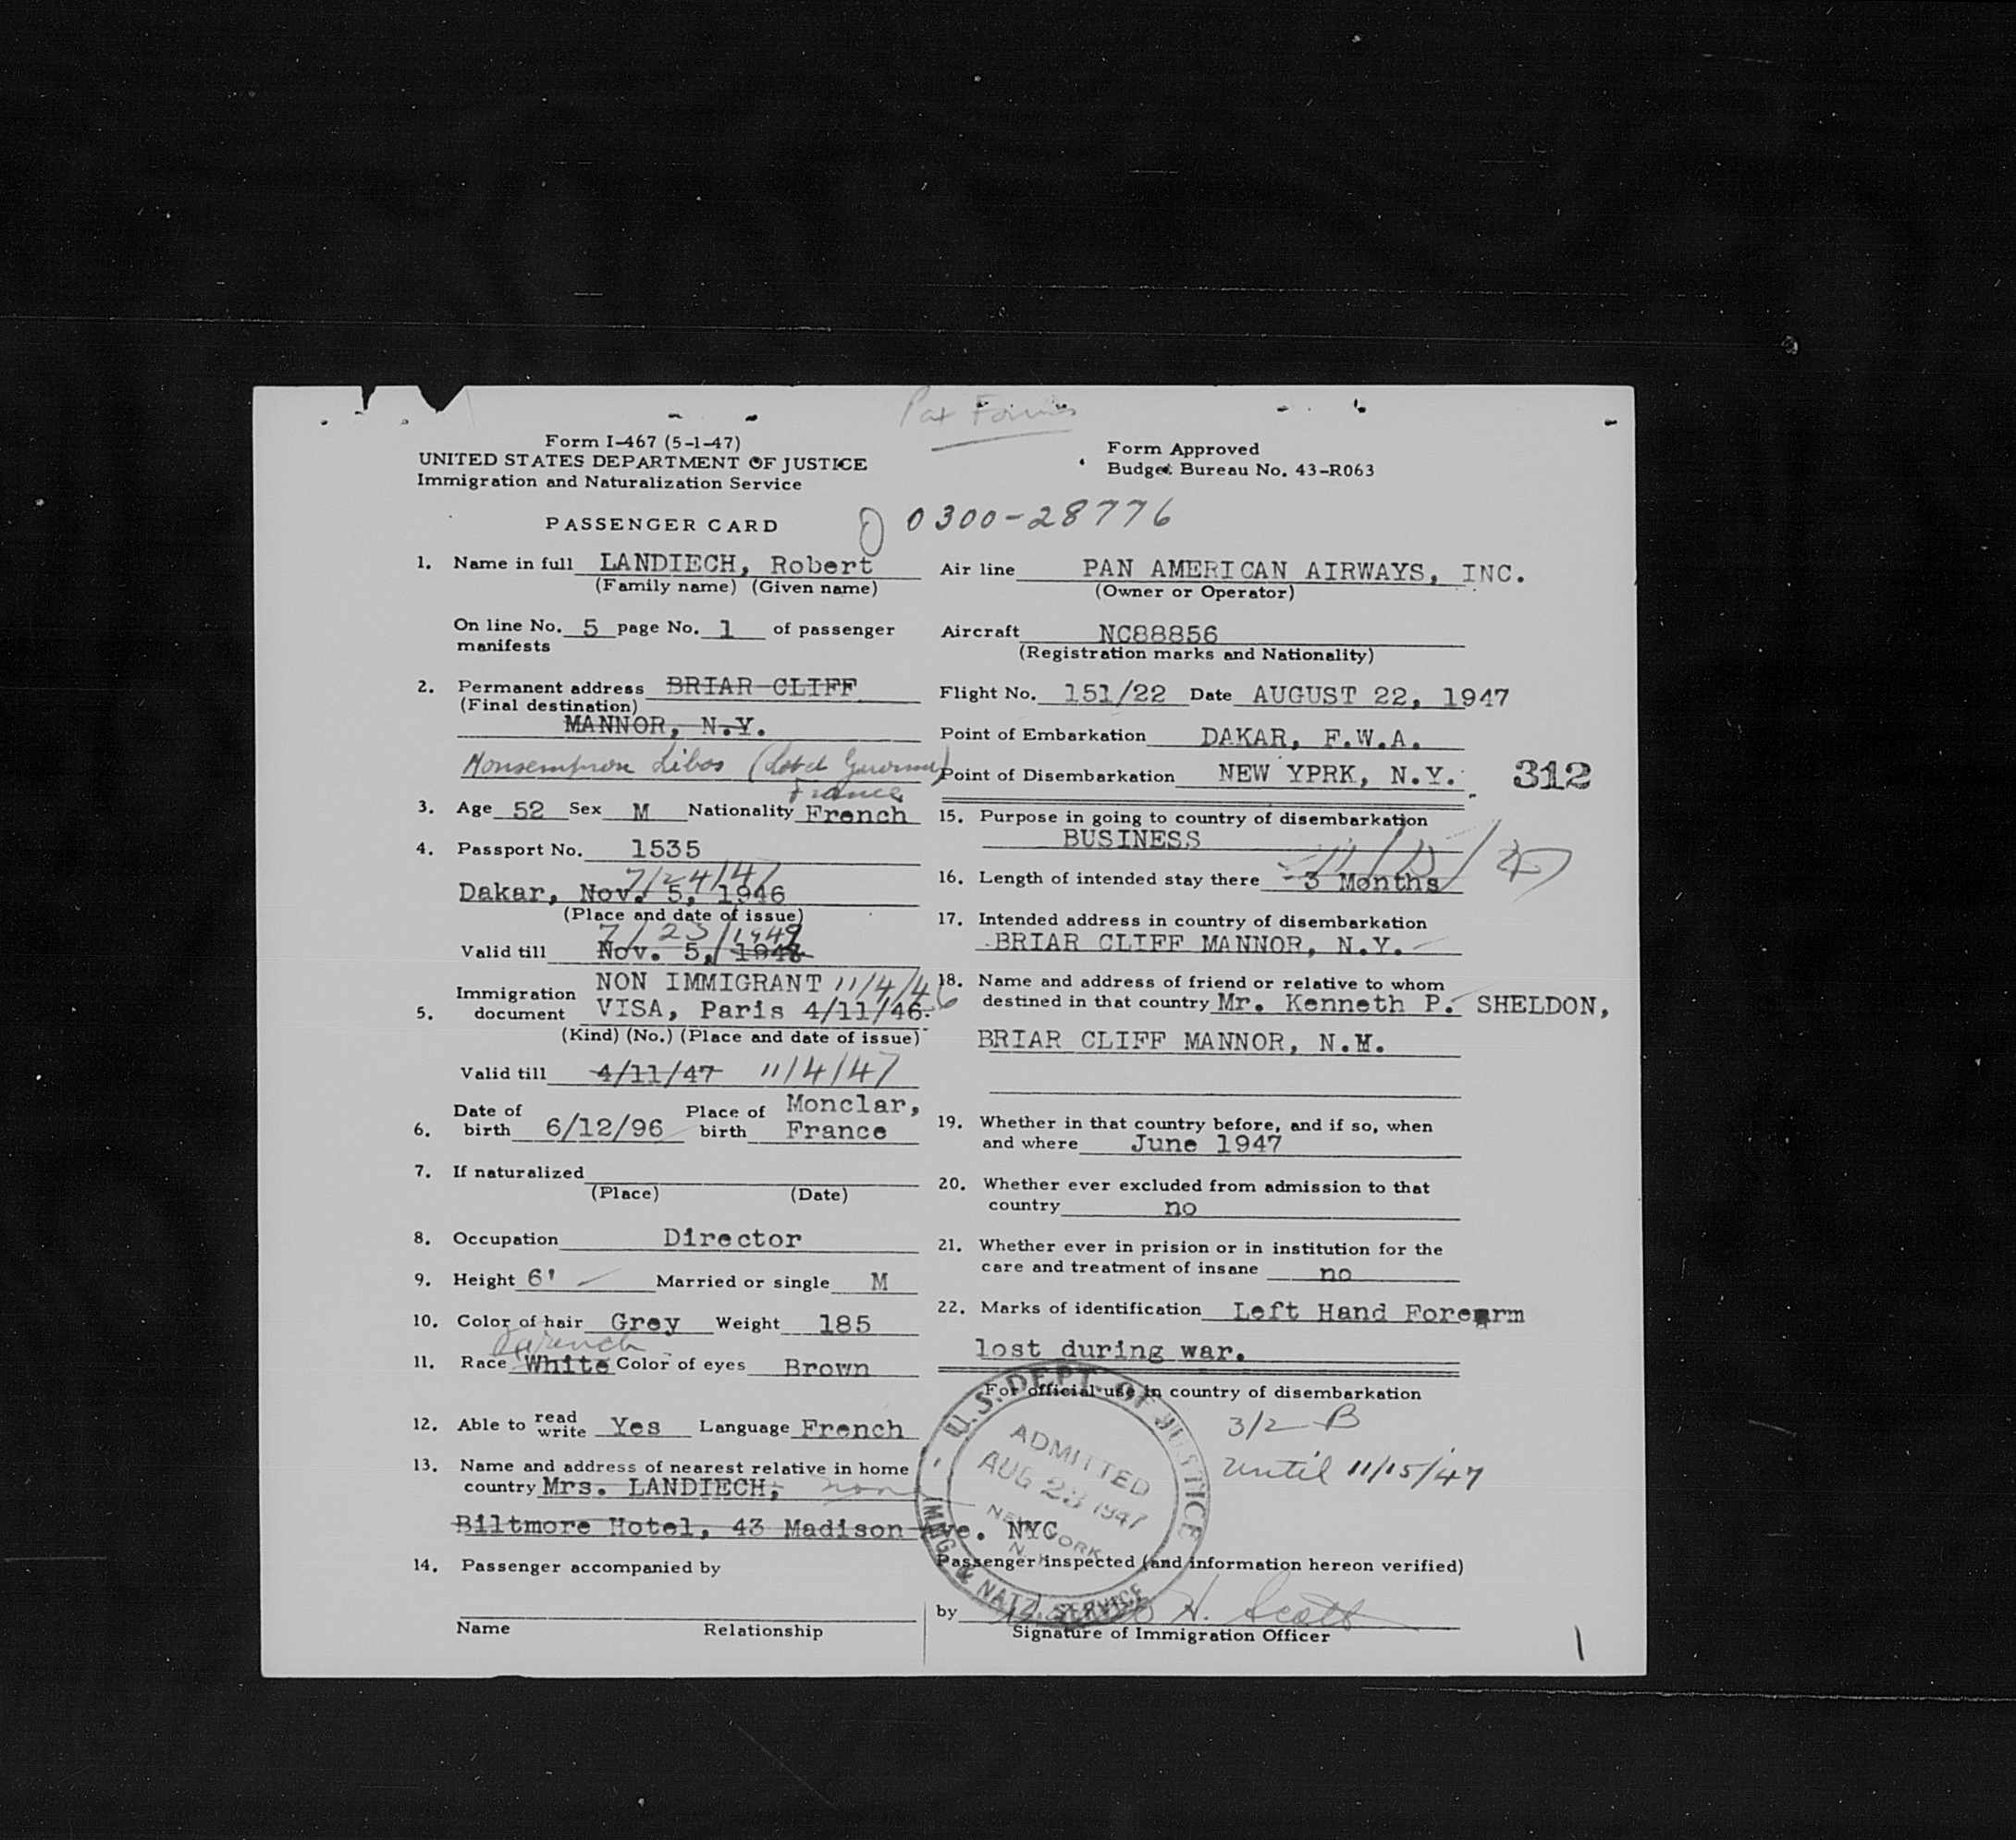 Pax Forms
Form I-467 (5-1-47)
UNITED STATES DEPARTMENT OF JUSTICE
Immigration and Naturalization Service
Form Approved
Budget Bureau No. 43-R063
PASSENGER CARD
0300-28776
1. Name in full LANDIECH, Robert
(Family name) (Given name)
On line No. 5 page No. 1 of passenger
manifests
2. Permanent address BRIAR CLIFF
(Final destination)
MANNOR, N.Y.
Monsempron Libos (Lot et Garonne)
France
3. Age 52 Sex M Nationality French
4. Passport No. 1535
7/24/47
Dakar, Nov. 5, 1946
(Place and date of issue)
7/23/1949
Valid till Nov. 5, 1948
NON IMMIGRANT 11/4/46
5. Immigration document VISA, Paris 4/11/46.
(Kind) (No.) (Place and date of issue)
Valid till 4/11/47 11/4/47
6. Date of birth 6/12/96 Place of birth Monclar, France
7. If naturalized
(Place) (Date)
8. Occupation Director
9. Height 6' Married or single M
10. Color of hair Grey Weight 185
French
11. Race White Color of eyes Brown
12. Able to read write Yes Language French
13. Name and address of nearest relative in home
country Mrs. LANDIECH, none
Biltmore Hotel, 43 Madison Ave. NYC
14. Passenger accompanied by
Name Relationship
Air line PAN AMERICAN AIRWAYS, INC.
(Owner or Operator)
Aircraft NC88856
(Registration marks and Nationality)
Flight No. 151/22 Date AUGUST 22, 1947
Point of Embarkation DAKAR, F.W.A.
Point of Disembarkation NEW YPRK, N.Y. 312
15. Purpose in going to country of disembarkation
BUSINESS
11/15/47
16. Length of intended stay there 3 Months
17. Intended address in country of disembarkation
BRIAR CLIFF MANNOR, N.Y.
18. Name and address of friend or relative to whom
destined in that country Mr. Kenneth P. SHELDON,
BRIAR CLIFF MANNOR, N.Y.
19. Whether in that country before, and if so, when
and where June 1947
20. Whether ever excluded from admission to that
country no
21. Whether ever in prision or in institution for the
care and treatment of insane no
22. Marks of identification Left Hand Forearm
lost during war.
For official use in country of disembarkation
3/2 B
until 11/15/47
U.S. DEPT. OF JUSTICE
ADMITTED
AUG 23 1947
NEW YORK
N.Y.
IMMG. & NATZ. SERVICE
Passenger inspected (and information hereon verified)
by H. Scott
Signature of Immigration Officer